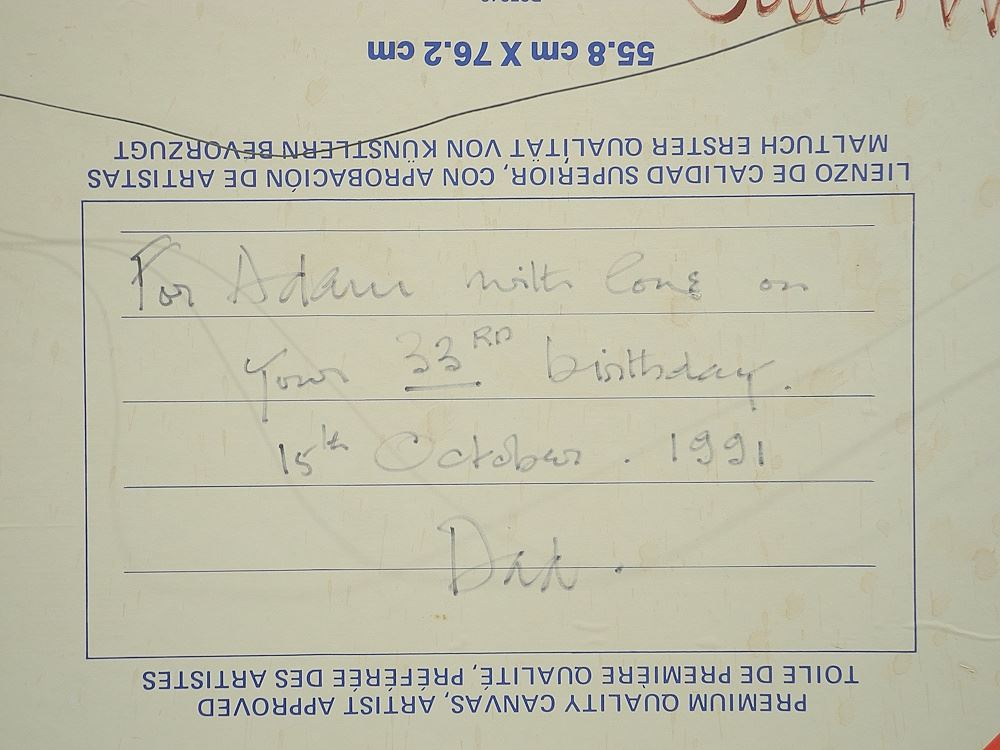 55.8 cm X 76.2 cm
MALTUCH ERSTER QUALÍTÄT VON KÜNSTLERN BEVORZUGT
LIENZO DE CALIDAD SUPERIOR, CON APROBACIÓN DE ARTISTAS
For Adam with love on
your 33RD birthday.
15th October. 1991
Dad.
TOILE DE PREMIÈRE QUALITÉ, PRÉFÉRÉE DES ARTISTES
PREMIUM QUALITY CANVAS, ARTIST APPROVED